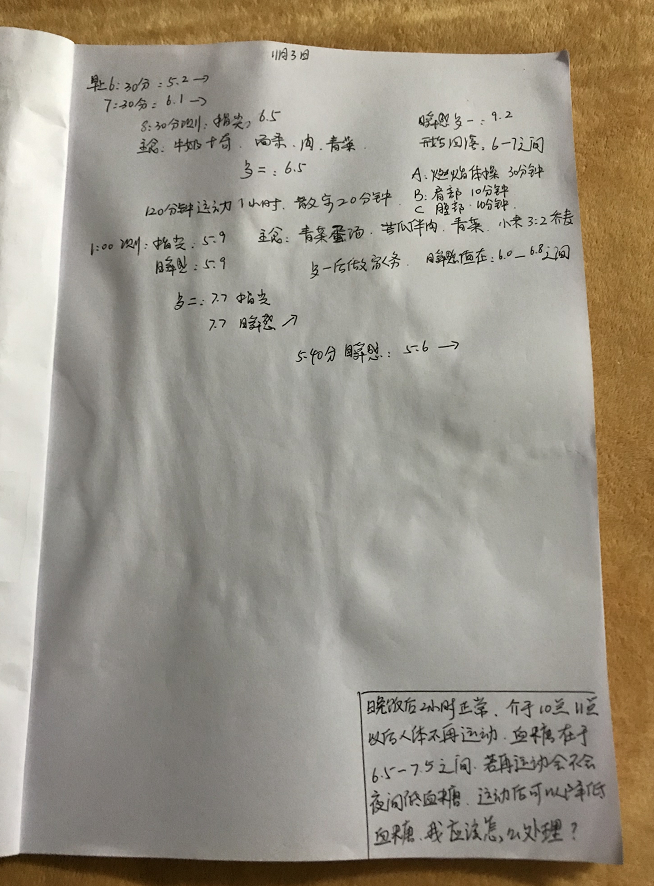 11月3日
早上6:30分:5.2→
7:30分:6.1→
8:30分测:指尖,6.5
主食:牛奶+奇、西柰、肉、青菜
多二:6.5
瞬感多一:9.2
开始回落,6-7之间
A:燃脂体操 30分钟
B:肩部 10分钟
C 腹部 10分钟
120分钟运动1小时、散步20分钟
1:00测:指尖:5.9
瞬感:5.9
主食:青菜蛋汤、苦瓜、牛肉、青菜、小米3:2
多一后做家务、瞬感值在:6.0—6.8之间
多二:7.7 指尖
7.7 瞬感↗
5:40分 瞬感:5.6→
晚饭后2小时正常、介于10点11点
以后人体不再运动、血糖在于
6.5-7.5之间、若再运动会不会
夜间低血糖、运动后可以降低
血糖、我应该怎么处理?